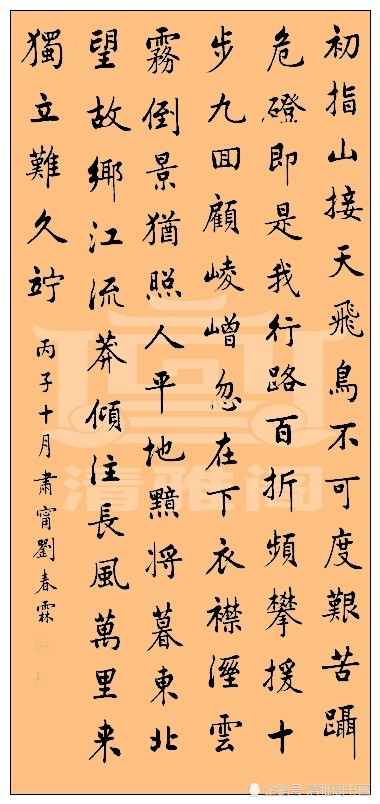 初指山接天飛鳥不可度艱苦躡
危磴即是我行路百折頻攀援十
步九囬顧崚嶒忽在下衣襟溼雲
霧倒景猶照人平地黯將暮東北
望故鄉江流莽傾注長風萬里来
獨立難久竚
丙子十月肅甯劉春霖
清雅阁